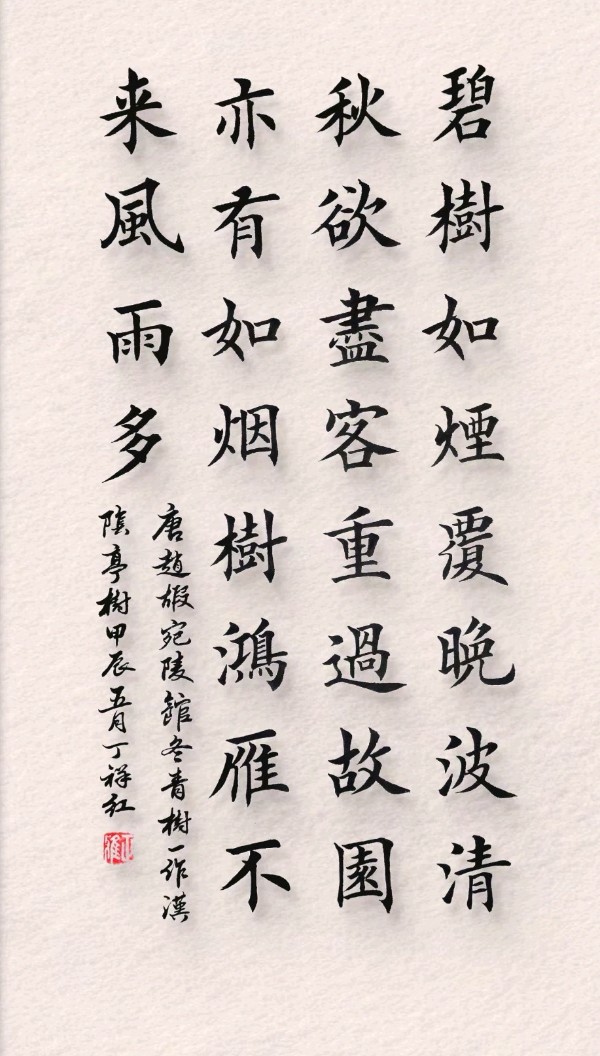 碧樹如煙覆晚波清
秋欲盡客重過故園
亦有如烟樹鴻雁不
来風雨多
唐趙嘏宛陵館冬青樹一作漢
陰亭樹甲辰五月丁祥红